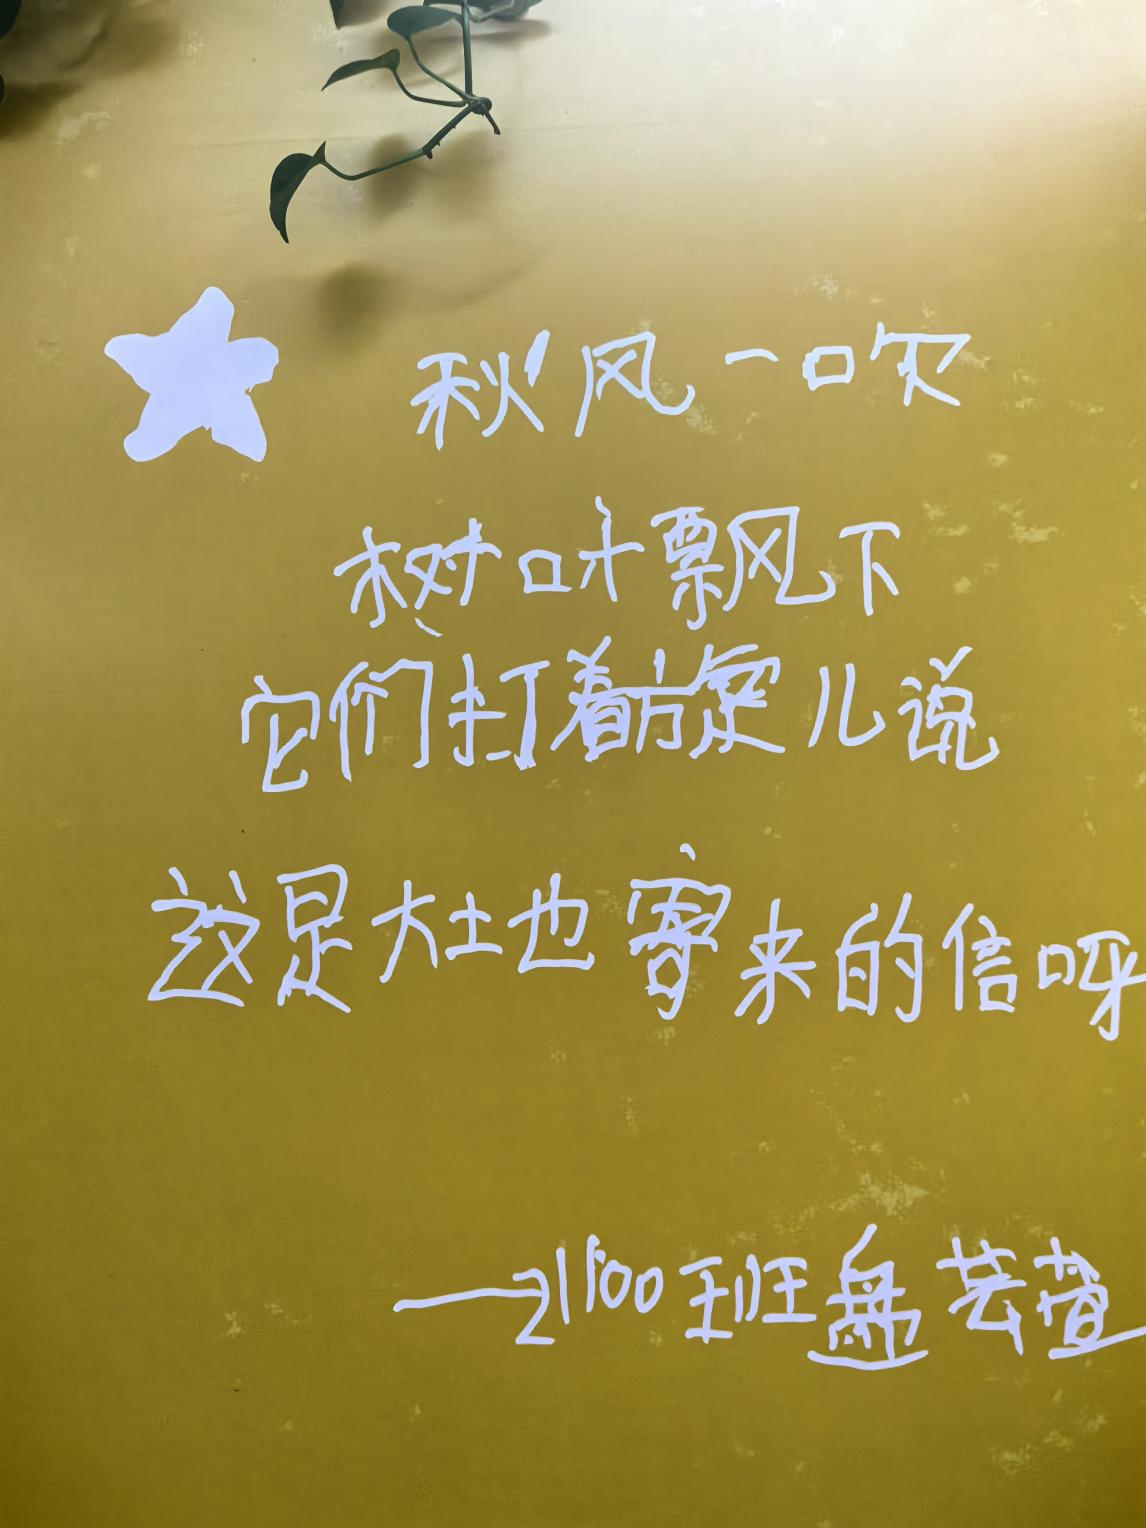 秋风一吹
树叶飘下
它们打着旋儿说
这是大土也寄来的信呀
——21100班盘芸萱